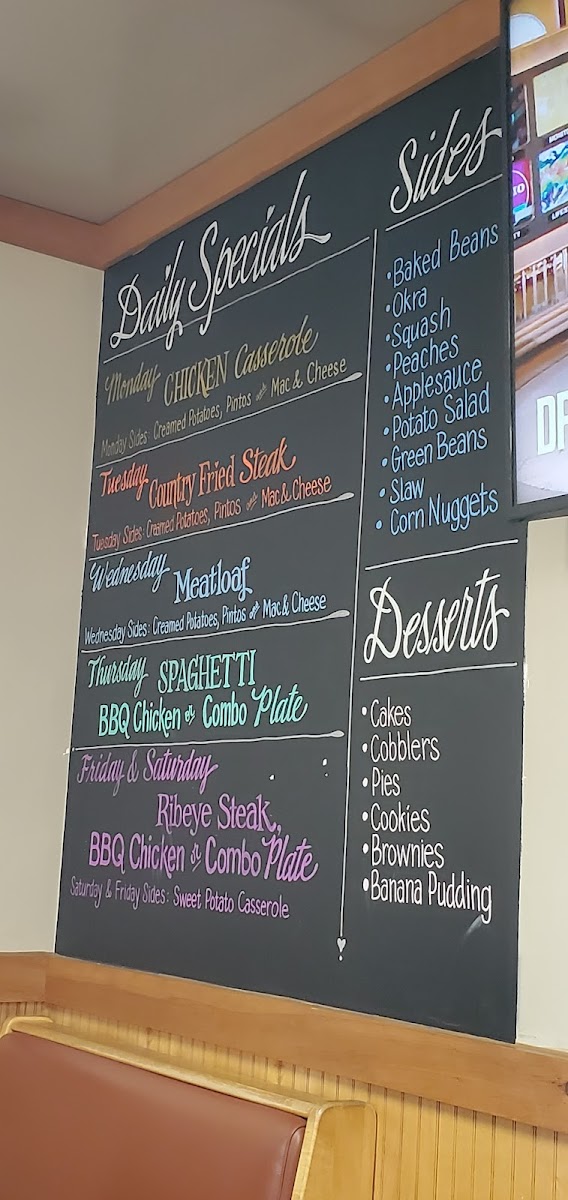 Daily Specials
Monday CHICKEN Casserole
Monday Sides: Creamed Potatoes, Pintos and Mac & Cheese
Tuesday Country Fried Steak
Tuesday Sides: Creamed Potatoes, Pintos and Mac & Cheese
Wednesday Meatloaf
Wednesday Sides: Creamed Potatoes, Pintos and Mac & Cheese
Thursday SPAGHETTI
BBQ Chicken or Combo Plate
Friday & Saturday
Ribeye Steak,
BBQ Chicken or Combo Plate
Saturday & Friday Sides: Sweet Potato Casserole
Sides
• Baked Beans
• Okra
• Squash
• Peaches
• Applesauce
• Potato Salad
• Green Beans
• Slaw
• Corn Nuggets
Desserts
• Cakes
• Cobblers
• Pies
• Cookies
• Brownies
• Banana Pudding